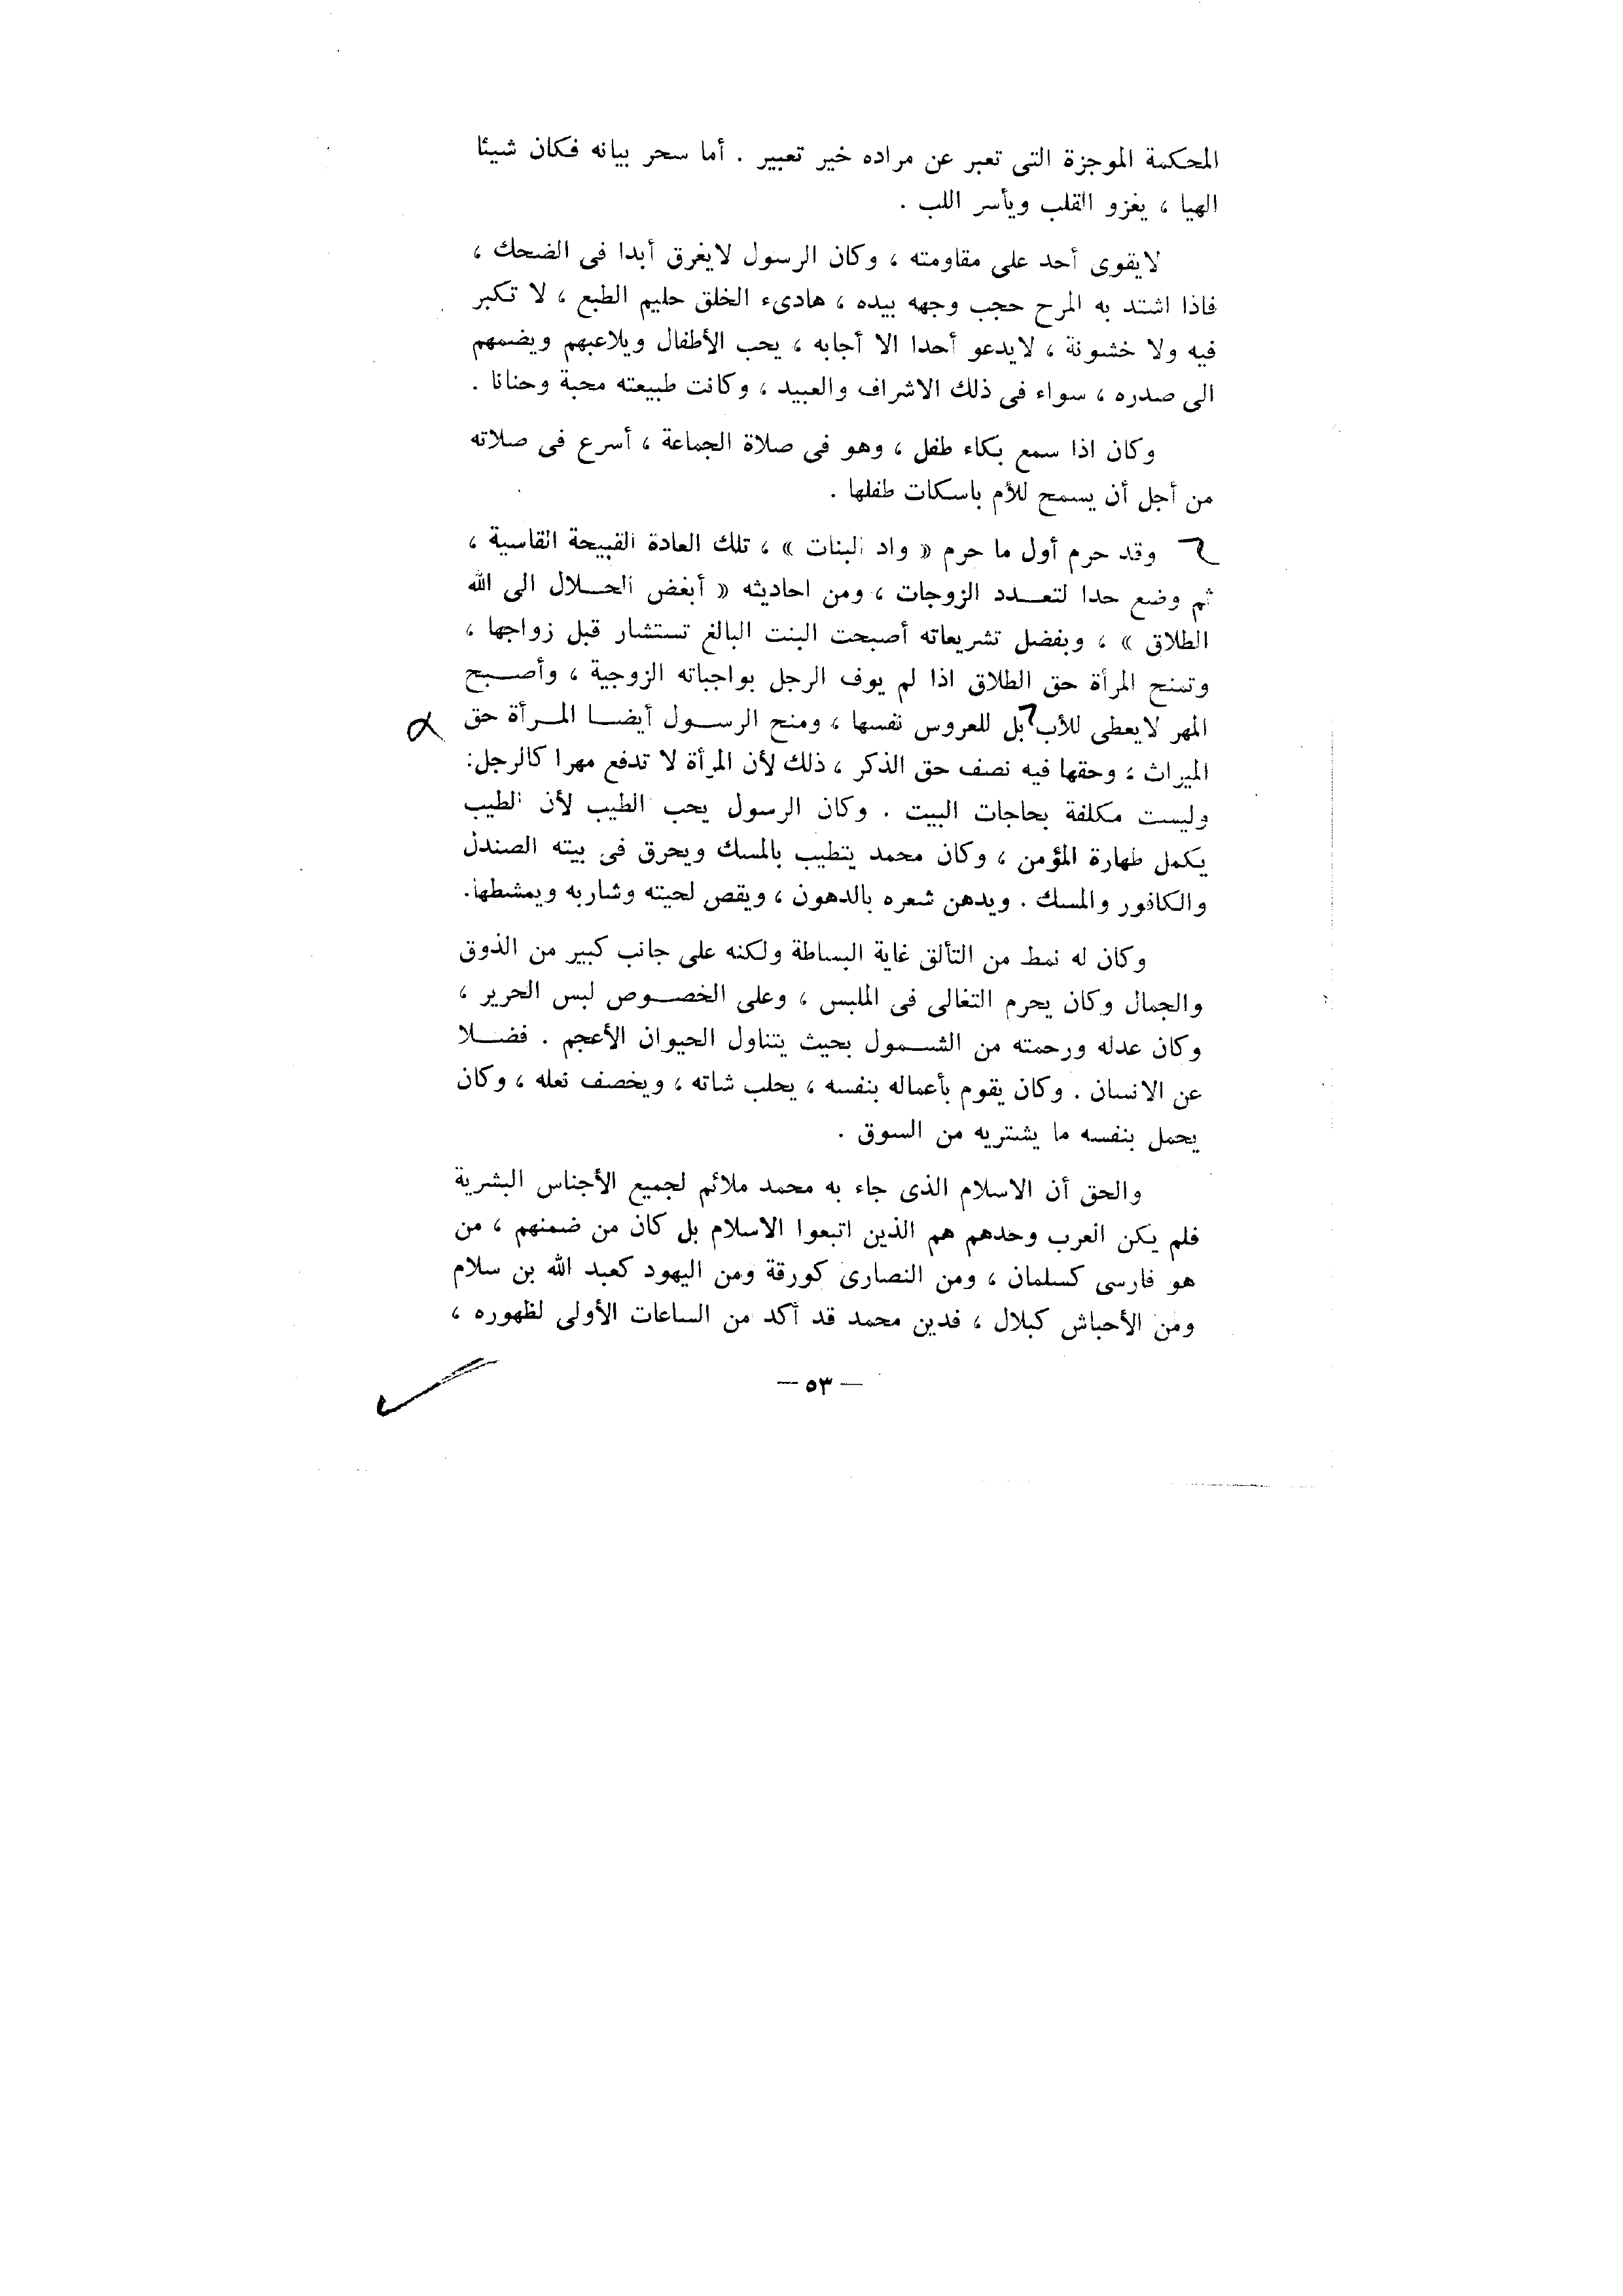 المحكمة الموجزة التى تعبر عن مراده خير تعبير . أما سحر بيانه فكان شيئا
الهيا ، يغزو القلب ويأسر اللب .
لايقوى أحد على مقاومته ، وكان الرسول لايغرق أبدا فى الضحك ،
فاذا اشتد به المرح حجب وجهه بيده ، هادىء الخلق حليم الطبع ، لا تكبر
فيه ولا خشونة ، لايدعو أحدا الا أجابه ، يحب الأطفال ويلاعبهم ويضمهم
الى صدره ، سواء فى ذلك الاشراف والعبيد ، وكانت طبيعته محبة وحنانا .
وكان اذا سمع بكاء طفل ، وهو فى صلاة الجماعة ، أسرع فى صلاته
من أجل أن يسمح للأم باسكات طفلها .
وقد حرم أول ما حرم « واد البنات » ، تلك العادة القبيحة القاسية ،
ثم وضع حدا لتعـــدد الزوجات ، ومن احاديثه « أبغض الحـــلال الى الله
الطلاق » ، وبفضل تشريعاته أصبحت البنت البالغ تستشار قبل زواجها ،
وتمنح المرأة حق الطلاق اذا لم يوف الرجل بواجباته الزوجية ، وأصـــبح
المهر لايعطى للأب بل للعروس نفسها ، ومنح الرســـول أيضـــا المـــرأة حق
الميراث ، وحقها فيه نصف حق الذكر ، ذلك لأن المرأة لا تدفع مهرا كالرجل:
وليست مكلفة بحاجات البيت . وكان الرسول يحب الطيب لأن الطيب
يكمل طهارة المؤمن ، وكان محمد يتطيب بالمسك ويحرق فى بيته الصندل
والكافور والمسك . ويدهن شعره بالدهون ، ويقص لحيته وشاربه ويمشطها.
وكان له نمط من التألق غاية البساطة ولكنه على جانب كبير من الذوق
والجمال وكان يحرم التغالى فى الملبس ، وعلى الخصـــوص لبس الحرير ،
وكان عدله ورحمته من الشـــمول بحيث يتناول الحيوان الأعجم . فضـــلا
عن الانسان . وكان يقوم بأعماله بنفسه ، يحلب شاته ، ويخصف نعله ، وكان
يحمل بنفسه ما يشتريه من السوق .
والحق أن الاسلام الذى جاء به محمد ملائم لجميع الأجناس البشرية
فلم يكن العرب وحدهم هم الذين اتبعوا الاسلام بل كان من ضمنهم ، من
هو فارسى كسلمان ، ومن النصارى كورقة ومن اليهود كعبد الله بن سلام
ومن الأحباش كبلال ، فدين محمد قد أكد من الساعات الأولى لظهوره ،
— ٥٣ —